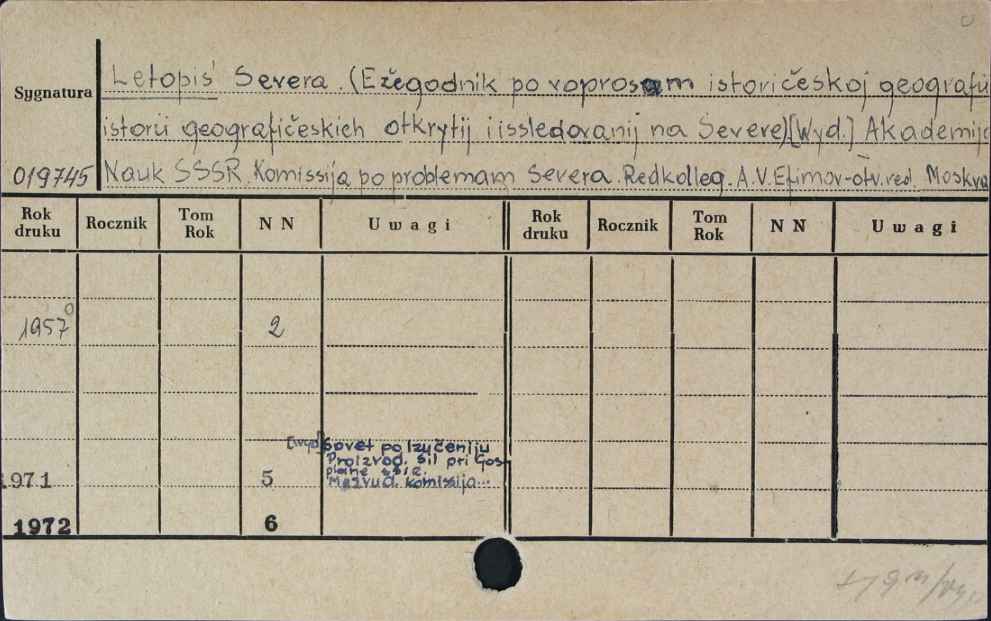 Letopis' Severa. (Ežegodnik po voprosam istoričeskoj geografii
Sygnatura
istorii geografičeskich otkrytij i issledovanij na Severe) [Wyd.] Akademija
019745 Nauk SSSR. Komissija po problemam Severa. Redkolleg. A.V. Efimov-otv. red. Moskva
Rok druku Rocznik Tom Rok NN Uwagi Rok druku Rocznik Tom Rok NN Uwagi
1957 2
[wyd] Sovet po Izučeniju
Proizvod. sil pri Gos-
plane SSSR.
1971 5 Mežvud. komissija...
1972 6